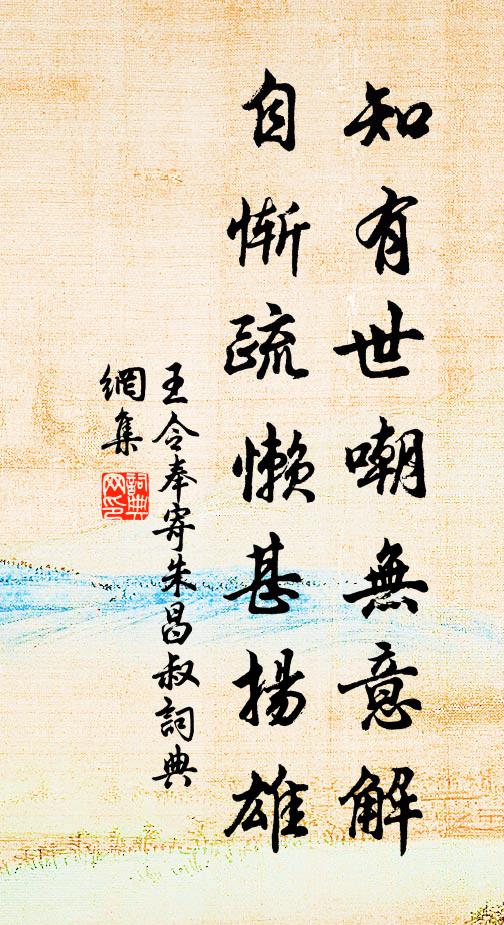 知有世嘲無意解
自慚疏懶甚揚雄
王令奉寄朱昌叔詞典
網集
詞典
网印